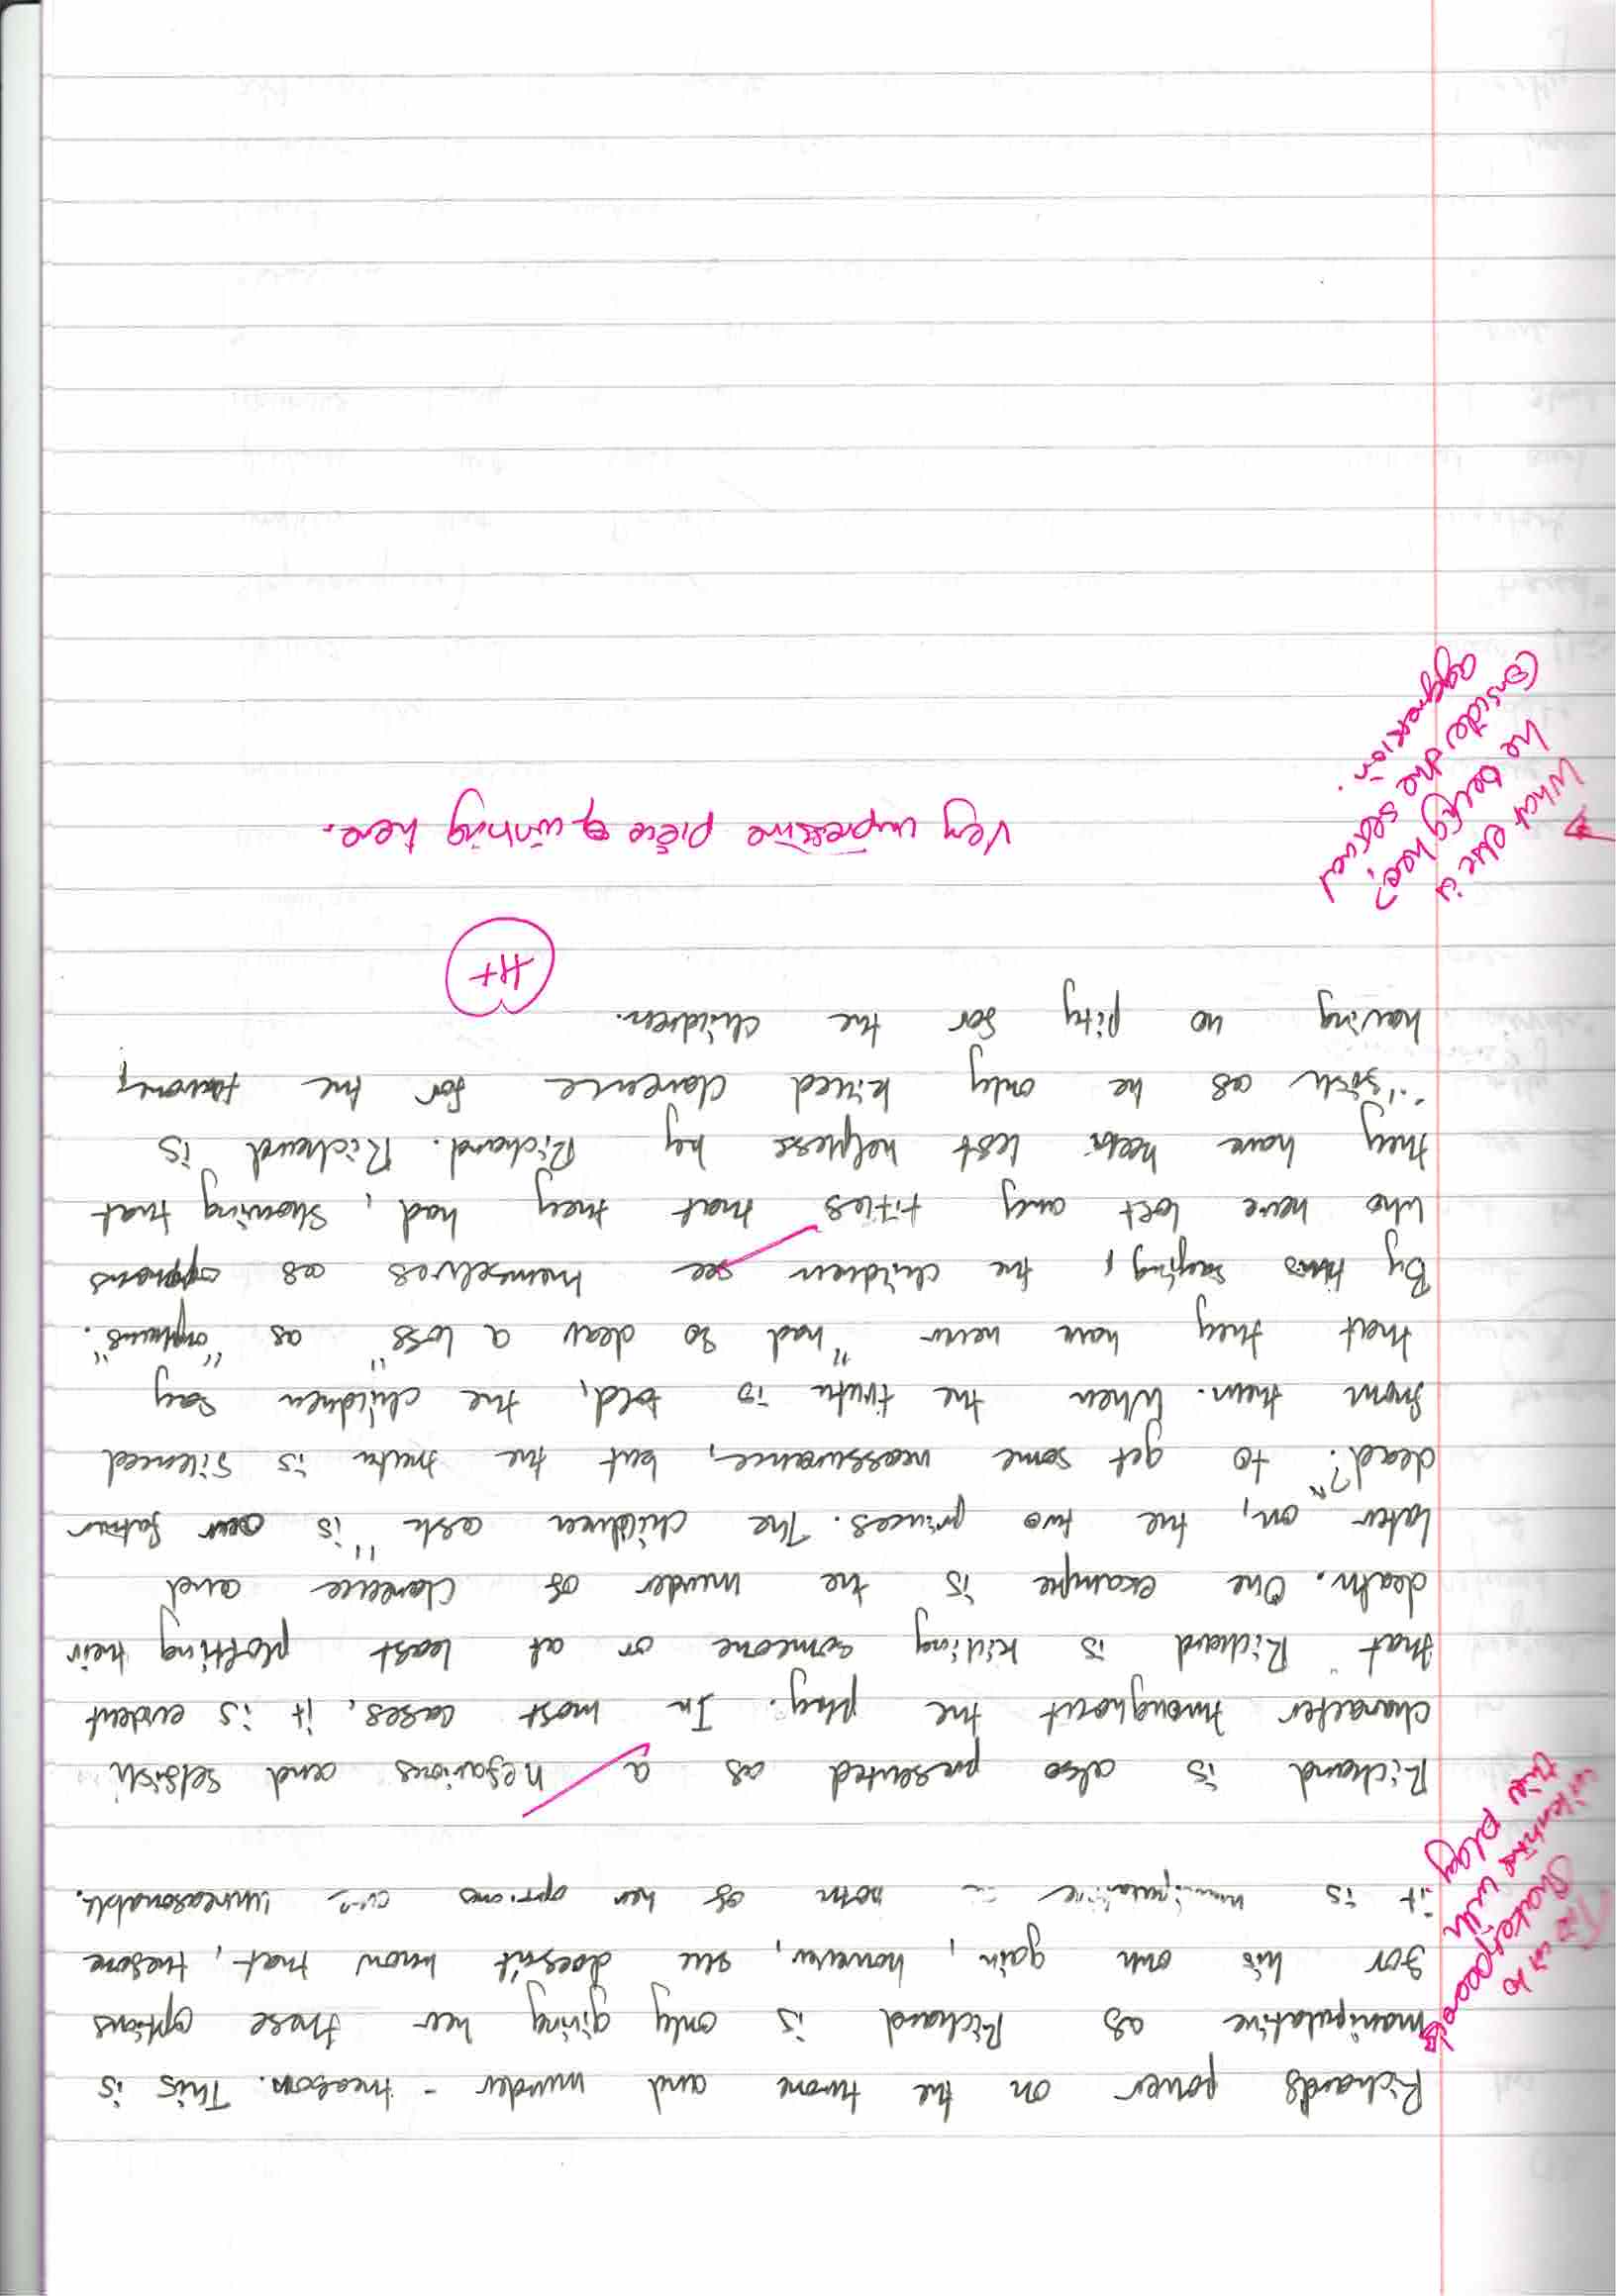 Richards power on the throne and murder - treason. This is
manipulative as Richard is only giving her these options
for his own gain, however, she doesn't know that, thefore
it is manipulative as both of her options are unreasonable.
Tie in to
Shakespeare's
intentions with
this play
Richard is also presented as a nefarious and selfish
character throughout the play. In most cases, it is evident
that Richard is killing someone or at least plotting their
death. One example is the murder of Clarence and
later on, the two princes. The children ask "is our father
dead?" to get some reassurance, but the truth is silenced
from them. When the truth is told, the children say
that they have never "had so dear a loss" as "orphans".
By this saying, the children see themselves as orphans
who have lost any titles that they had, showing that
they have been left helpless by Richard. Richard is
as he only killed Clarence for the throne,
having no pity for the children.
H+
What else is
he being here?
Consider the sexual
aggression.
Very impressive piece of writing here.